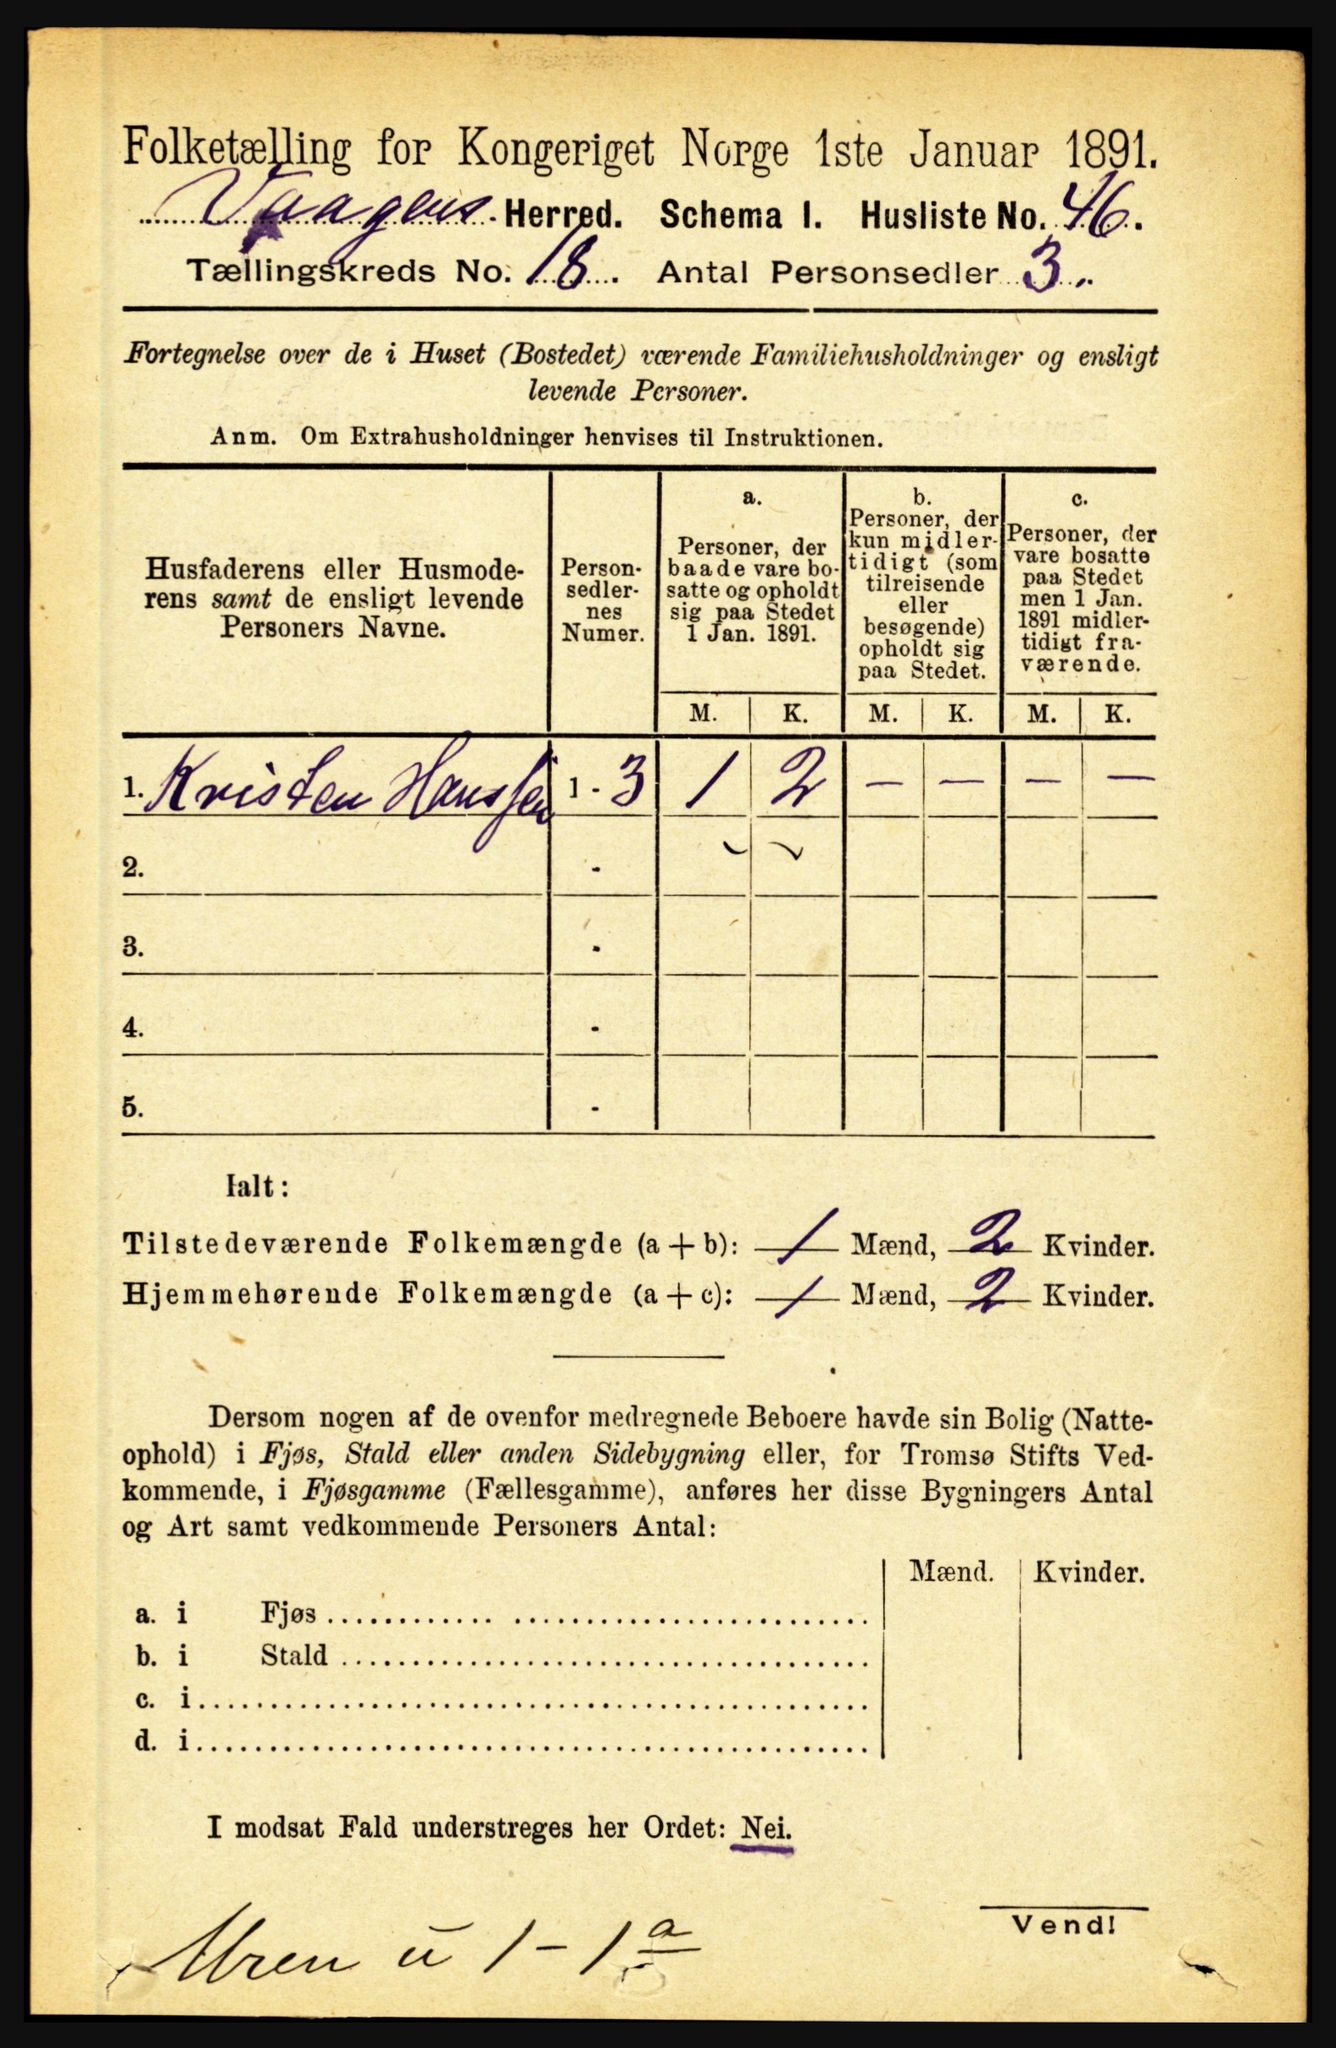 Folketælling for Kongeriget Norge 1ste Januar 1891.
Vaagens Herred. Schema I. Husliste No. 46.
Tællingskreds No. 18. Antal Personsedler 3.
Fortegnelse over de i Huset (Bostedet) værende Familiehusholdninger og ensligt
levende Personer.
Anm. Om Extrahusholdninger henvises til Instruktionen.
Husfaderens eller Husmode-
rens samt de ensligt levende
Personers Navne.
Person-
sedler-
nes
Numer.
a.
Personer, der
baade vare bo-
satte og opholdt
sig paa Stedet
1 Jan. 1891.
b.
Personer, der
kun midler-
tidigt (som
tilreisende
eller
besøgende)
opholdt sig
paa Stedet.
c.
Personer, der
vare bosatte
paa Stedet
men 1 Jan.
1891 midler-
tidigt fra-
værende.
M. K. M. K. M. K.
1. Kristen Hanssen 1 - 3 1 2 — — — —
2. -
3. -
4. -
5. -
Ialt:
Tilstedeværende Folkemængde (a + b): 1 Mænd, 2 Kvinder.
Hjemmehørende Folkemængde (a + c): 1 Mænd, 2 Kvinder.
Dersom nogen af de ovenfor medregnede Beboere havde sin Bolig (Natte-
ophold) i Fjøs, Stald eller anden Sidebygning eller, for Tromsø Stifts Ved-
kommende, i Fjøsgamme (Fællesgamme), anføres her disse Bygningers Antal
og Art samt vedkommende Personers Antal:
Mænd. Kvinder.
a. i Fjøs
b. i Stald
c. i
d. i
I modsat Fald understreges her Ordet: Nei.
Vend!
u 1 - 1 a